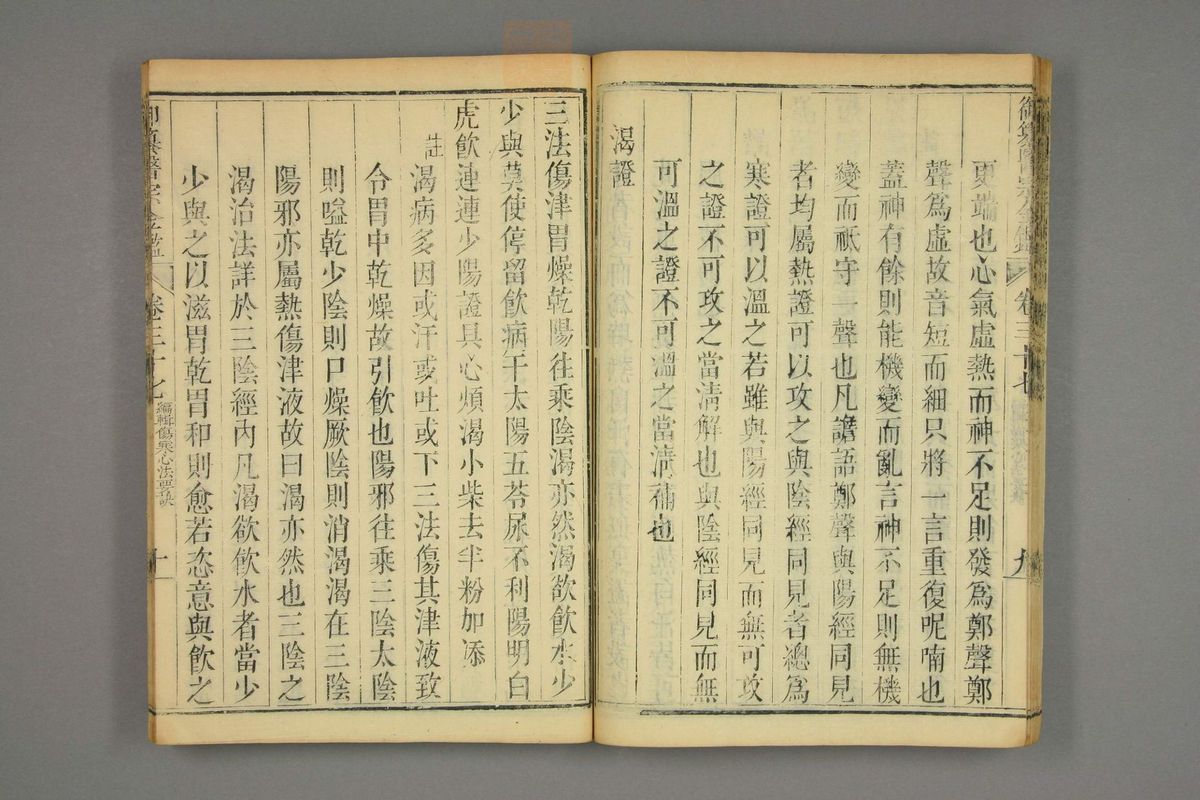 御纂醫宗金鑑 卷三十七 九
更端也心氣虛熱而神不足則發為鄭聲鄭
聲為虛故音短而細只將一言重復呢喃也
蓋神有餘則能機變而亂言神不足則無機
變而祇守一聲也凡譫語鄭聲與陽經同見
者均屬熱證可以攻之與陰經同見者總為
寒證可以溫之若雖與陽經同見而無可攻
之證不可攻之當清解也與陰經同見而無
可溫之證不可溫之當清補也
渴證
三法傷津胃燥乾陽往乘陰渴亦然渴欲飲水少
少與莫使停留飲病干太陽五苓尿不利陽明白
虎飲連連少陽證具心煩渴小柴去半粉加添
註 渴病多因或汗或吐或下三法傷其津液致
令胃中乾燥故引飲也陽邪往乘三陰太陰
則嗌乾少陰則口燥厥陰則消渴渴在三陰
陽邪亦屬熱傷津液故曰渴亦然也三陰之
渴治法詳於三陰經內凡渴欲飲水者當少
少與之以滋胃乾胃和則愈若恣意與飲之
御纂醫宗金鑑 卷三十七 編輯傷寒心法要訣 十